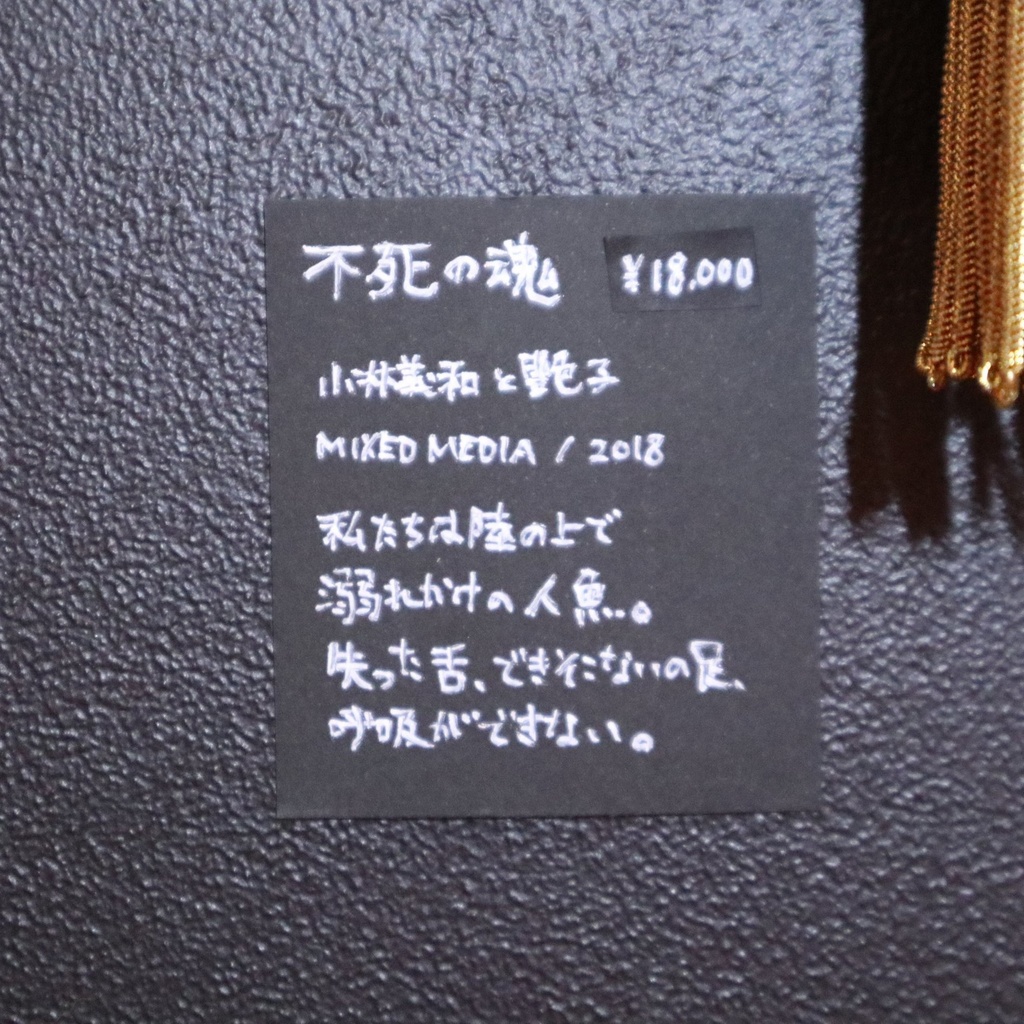 不死の魂 ¥18.000
小林義和と艶子
MIXED MEDIA / 2018
私たちは陸の上で
溺れかけの人魚。
失った舌、できそこないの足、
呼吸ができない。